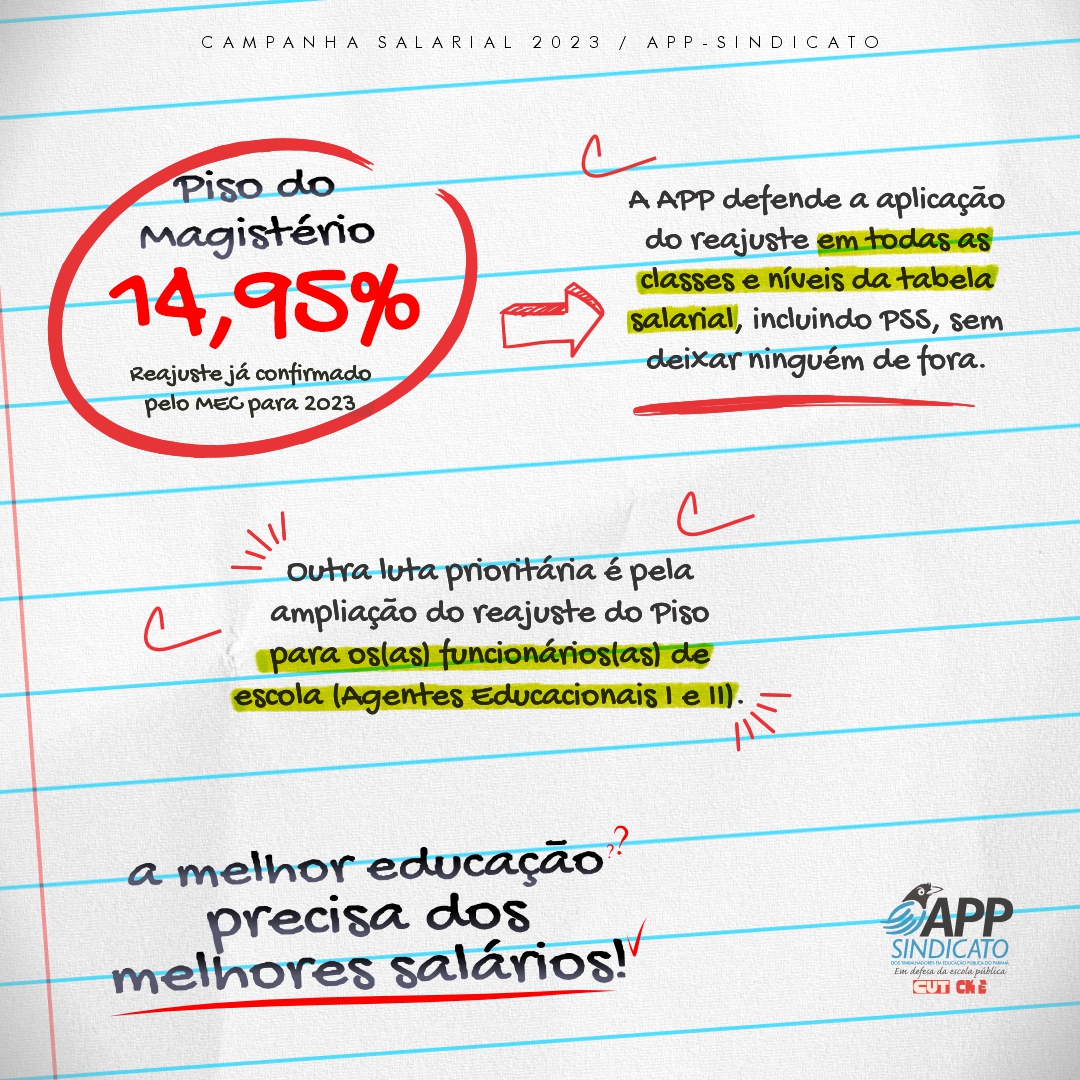 CAMPANHA SALARIAL 2023 / APP-SINDICATO
Piso do
Magistério
14,95%
Reajuste já confirmado
pelo MEC para 2023
A APP defende a aplicação
do reajuste em todas as
classes e níveis da tabela
salarial, incluindo PSS, sem
deixar ninguém de fora.
Outra luta prioritária é pela
ampliação do reajuste do Piso
para os(as) funcionários(as) de
escola (Agentes Educacionais I e II).
a melhor educação??
precisa dos
melhores salários!
APP
SINDICATO
DOS TRABALHADORES EM EDUCAÇÃO PÚBLICA DO PARANÁ
Em defesa da escola pública
CUT CNE